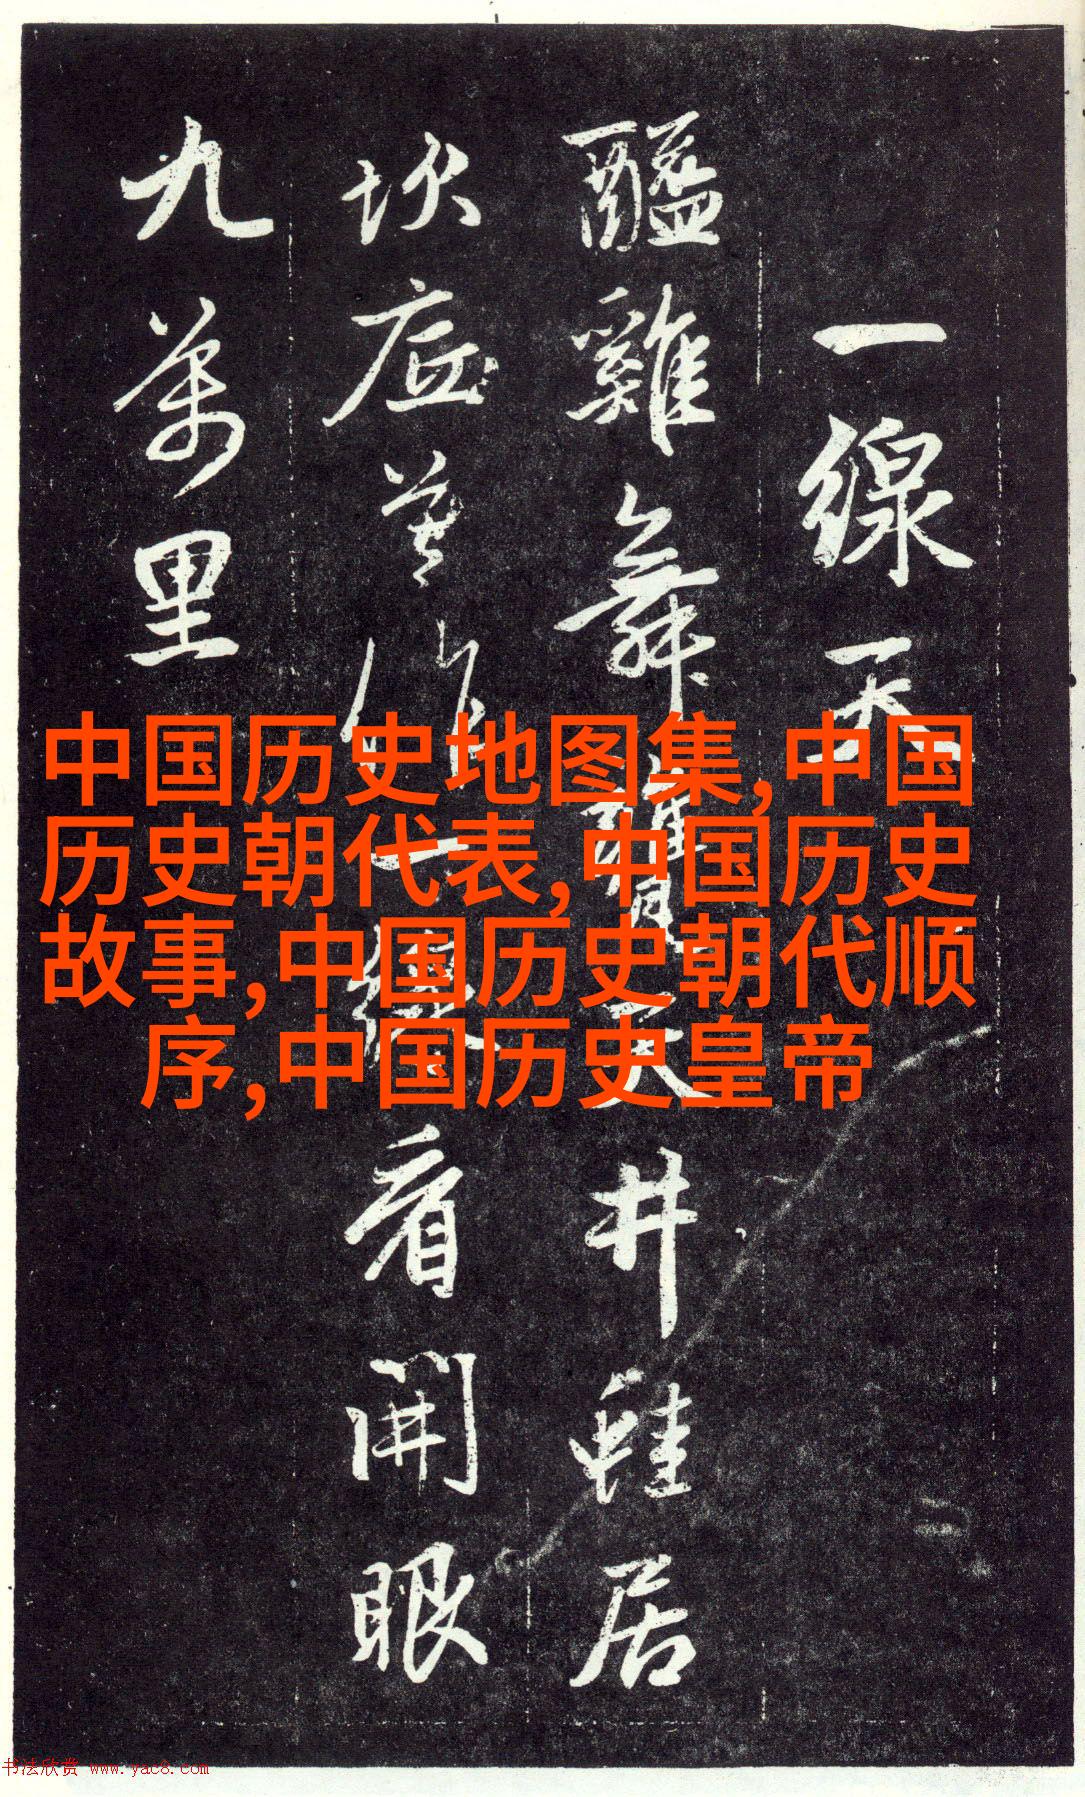 一線天
醯雞舞天井蛙居
坎底莫作一線看開眼
九萬里
中国历史地图集,中国
历史朝代表,中国历史
故事,中国历史朝代顺
序,中国历史皇帝
书法欣赏 www.yac8.com